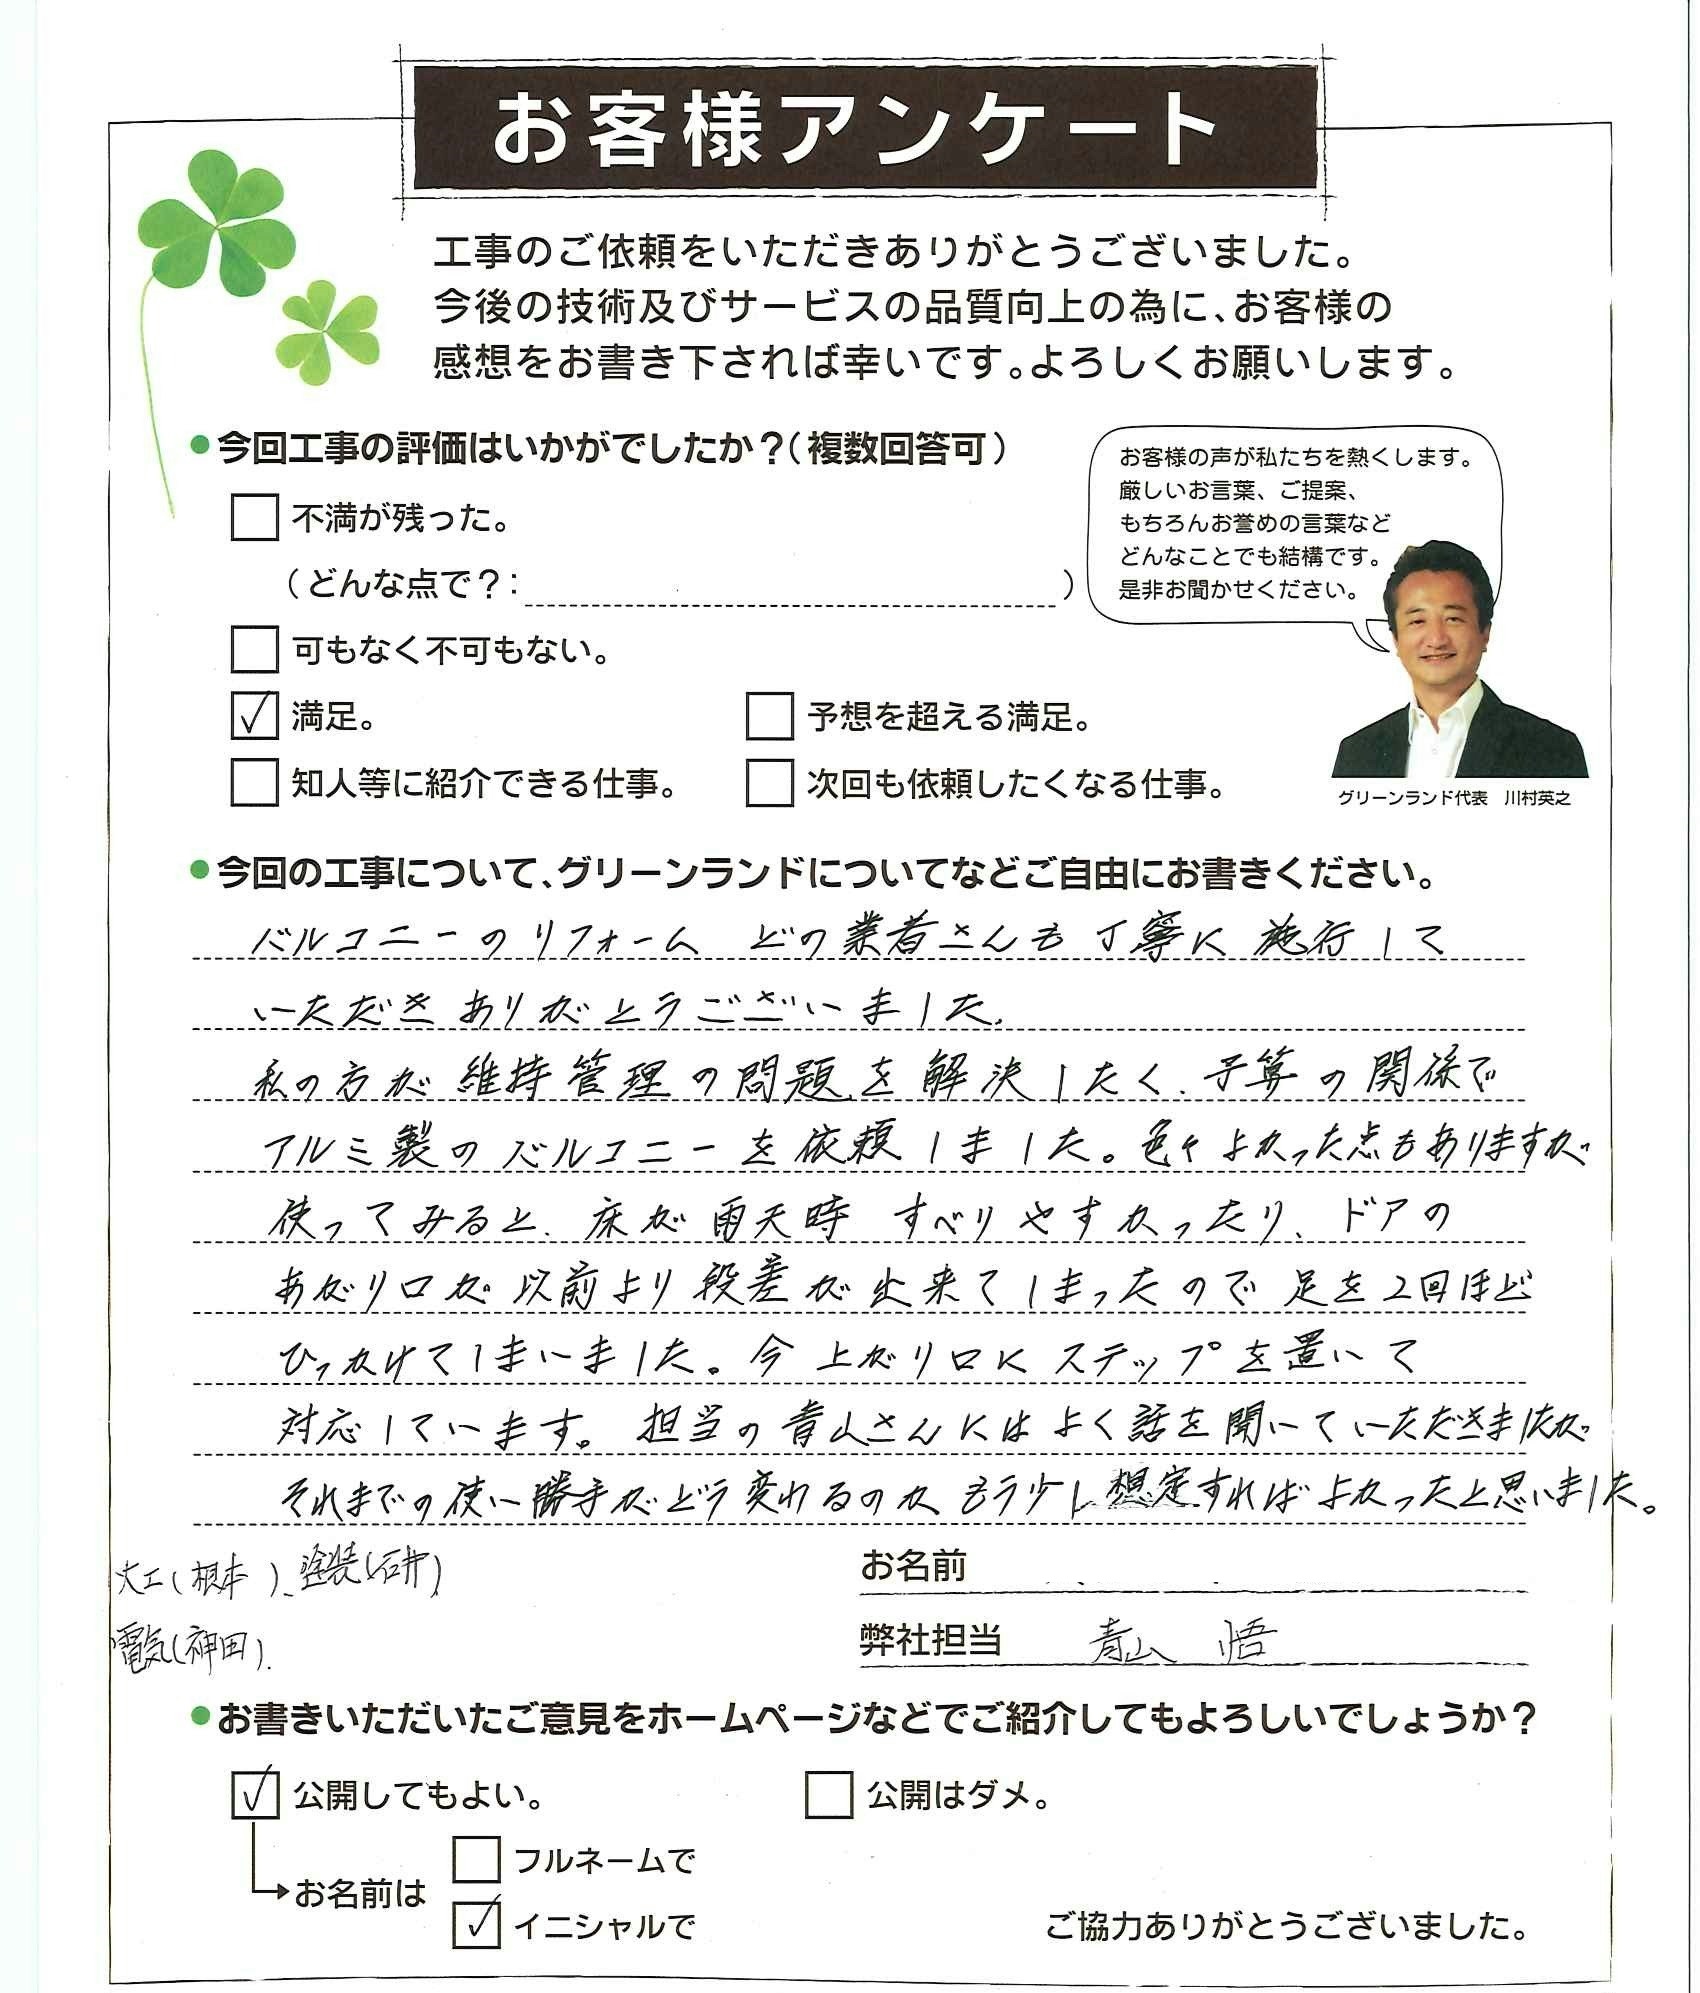 お客様アンケート
工事のご依頼をいただきありがとうございました。
今後の技術及びサービスの品質向上の為に、お客様の
感想をお書き下されば幸いです。よろしくお願いします。
●今回工事の評価はいかがでしたか？（複数回答可）
不満が残った。
（どんな点で？：　）
可もなく不可もない。
✓ 満足。
予想を超える満足。
知人等に紹介できる仕事。
次回も依頼したくなる仕事。
お客様の声が私たちを熱くします。
厳しいお言葉、ご提案、
もちろんお誉めの言葉など
どんなことでも結構です。
是非お聞かせください。
グリーンランド代表　川村英之
●今回の工事について、グリーンランドについてなどご自由にお書きください。
バルコニーのリフォーム どの業者さんも丁寧に施行して
いただきありがとうございました。
私の方が維持管理の問題を解決したく、予算の関係で
アルミ製のバルコニーを依頼しました。色々よかった点もありますが
使ってみると、床が雨天時 すべりやすかったり、ドアの
あがり口が以前より段差が出来てしまったので足を2回ほど
ひっかけてしまいました。今 上がり口にステップを置いて
対応しています。担当の青山さんにはよく話を聞いていただきましたが
それまでの使い勝手がどう変わるのか、もう少し想定すればよかったと思いました。
大工(根本)、塗装(石井)
電気(神田).
お名前
弊社担当　青山　悟
●お書きいただいたご意見をホームページなどでご紹介してもよろしいでしょうか？
✓ 公開してもよい。
公開はダメ。
お名前は
フルネームで
✓ イニシャルで
ご協力ありがとうございました。